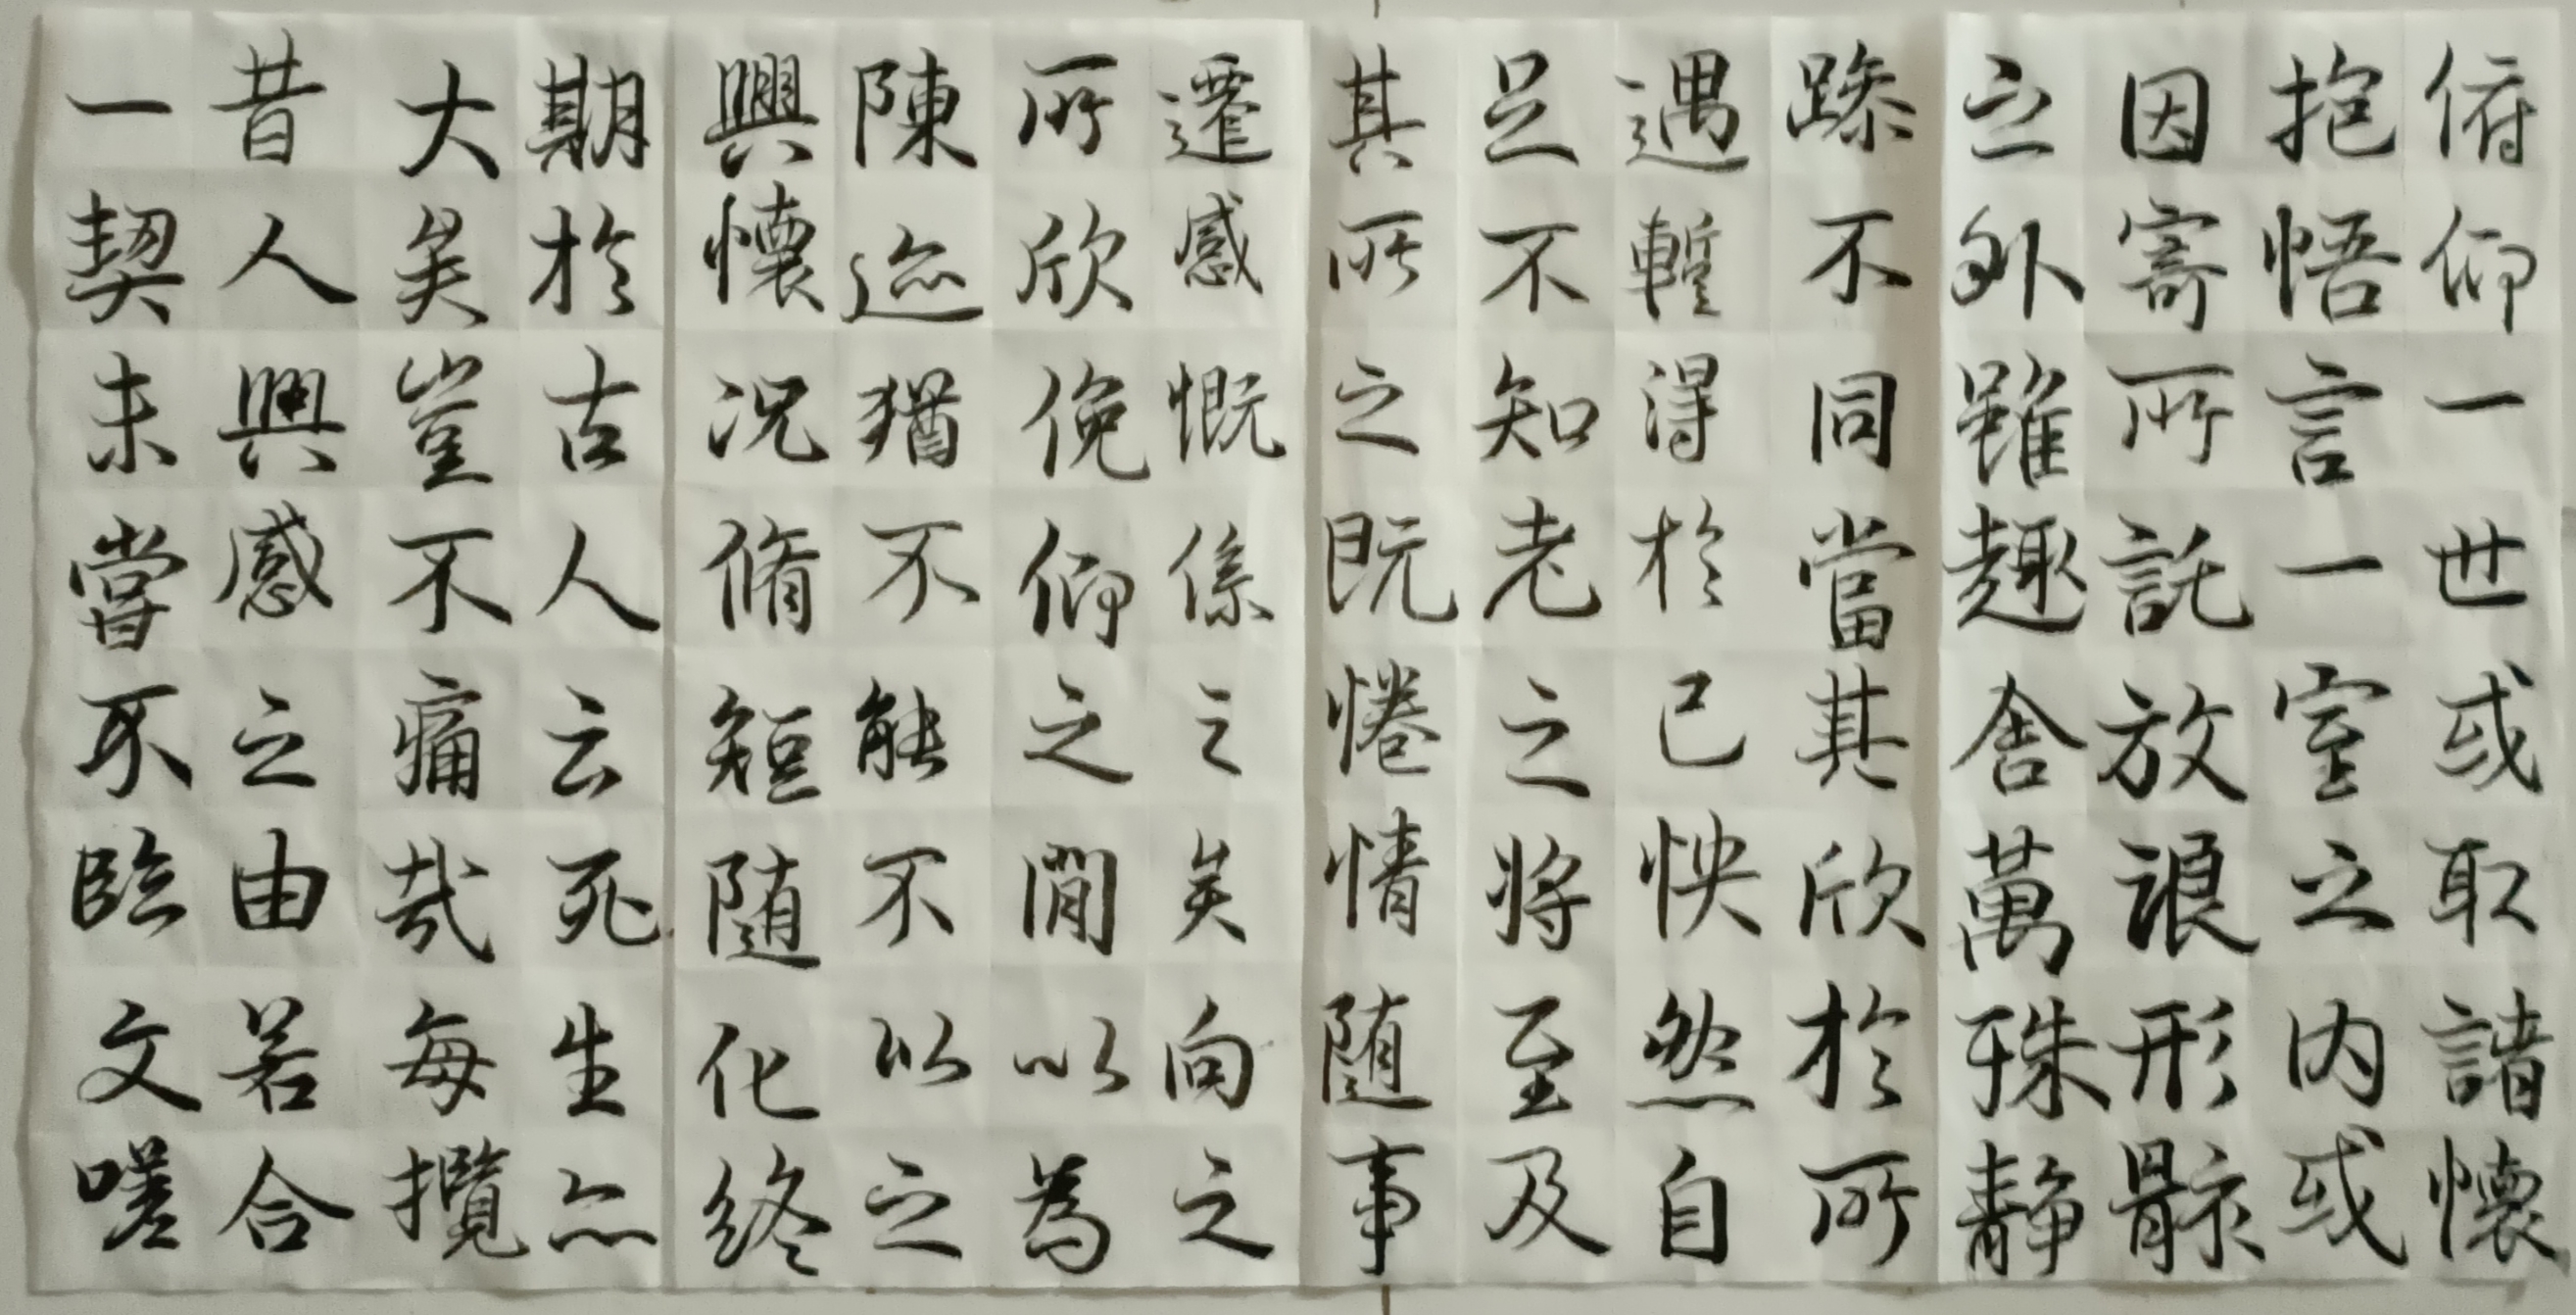 俯仰一世或取諸懷
抱悟言一室之内或
因寄所託放浪形骸
之外雖趣舍萬殊静
躁不同當其欣於所
遇暫得於己怏然自
足不知老之將至及
其所之既惓情随事
遷感慨係之矣向之
所欣俛仰之間以為
陳迹猶不能不以之
興懷况脩短随化終
期於古人云死生亦
大矣豈不痛哉每攬
昔人興感之由若合
一契未嘗不臨文嗟